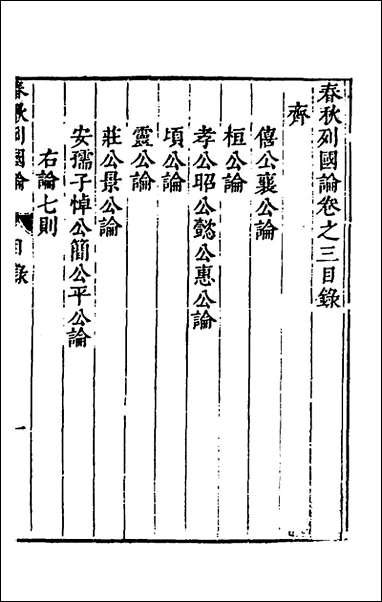 春秋列國論卷之三目錄
齊
僖公襄公論
桓公論
孝公昭公懿公惠公論
頃公論
靈公論
莊公景公論
安孺子悼公簡公平公論
右論七則
春秋列國論
目錄
一